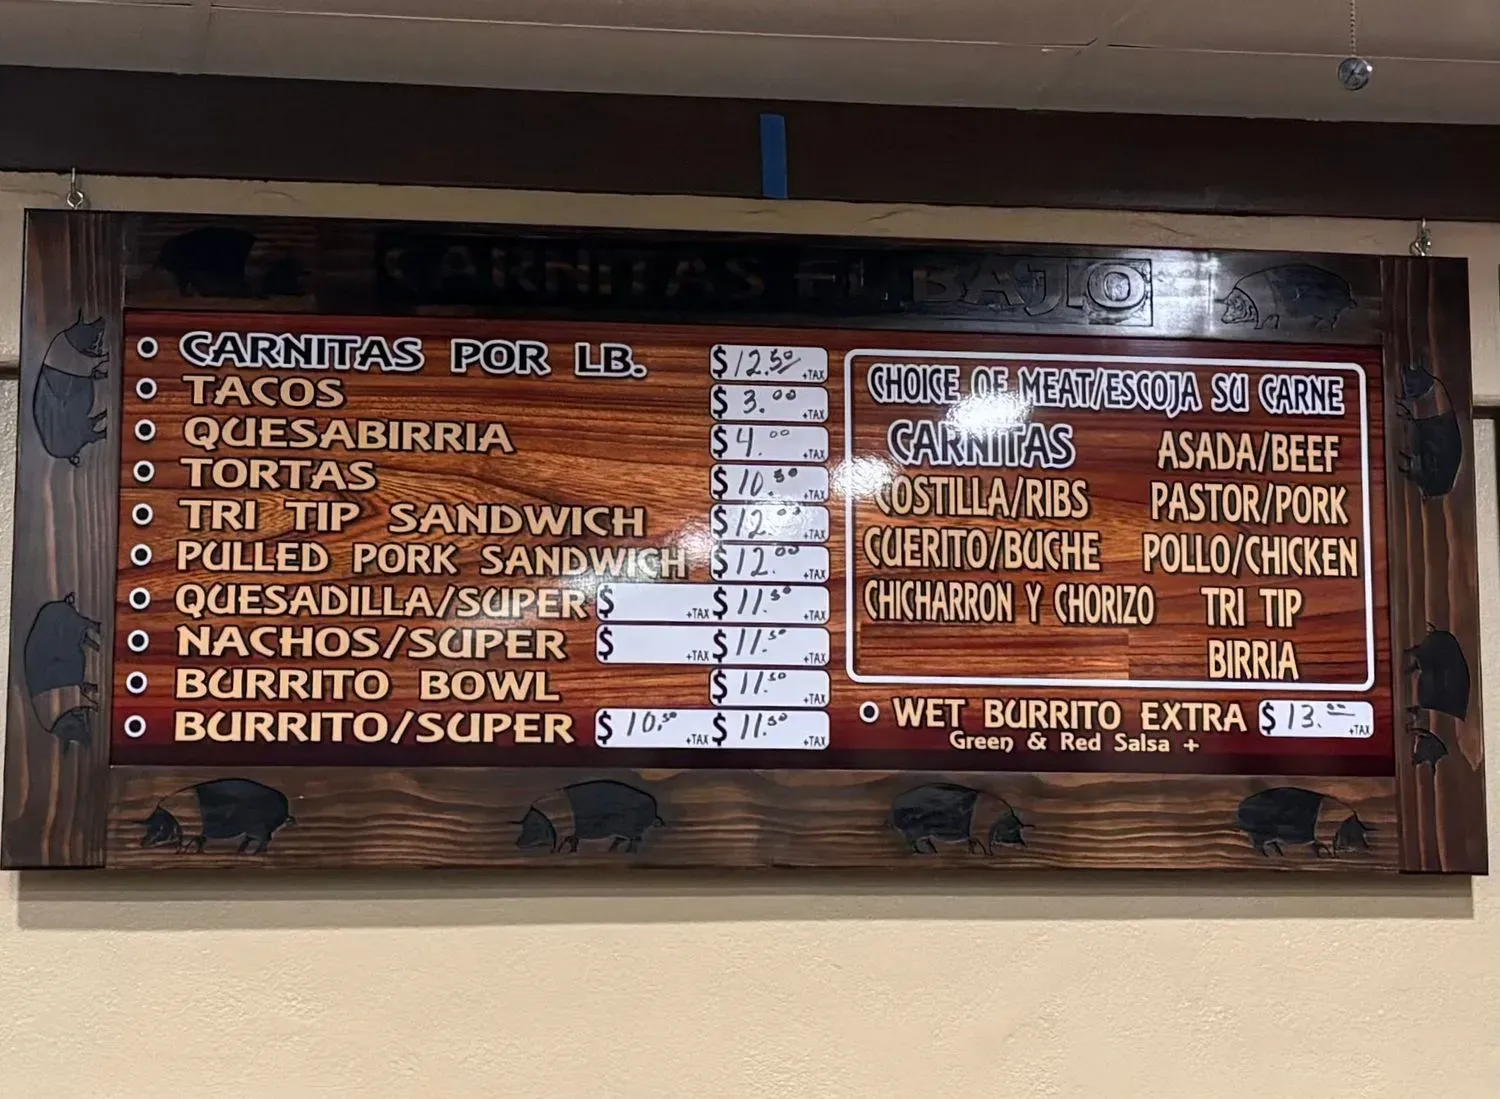 CARNITAS EL BAJIO
CARNITAS POR LB. $12.50 +TAX
TACOS $3.00 +TAX
QUESABIRRIA $4.00 +TAX
TORTAS $10.50 +TAX
TRI TIP SANDWICH $12.00 +TAX
PULLED PORK SANDWICH $12.00 +TAX
QUESADILLA/SUPER $ +TAX $11.50 +TAX
NACHOS/SUPER $ +TAX $11.50 +TAX
BURRITO BOWL $11.50 +TAX
BURRITO/SUPER $10.50 +TAX $11.50 +TAX
CHOICE OF MEAT/ESCOJA SU CARNE
CARNITAS ASADA/BEEF
COSTILLA/RIBS PASTOR/PORK
CUERITO/BUCHE POLLO/CHICKEN
CHICHARRON Y CHORIZO TRI TIP
BIRRIA
WET BURRITO EXTRA $13.00 +TAX
Green & Red Salsa +